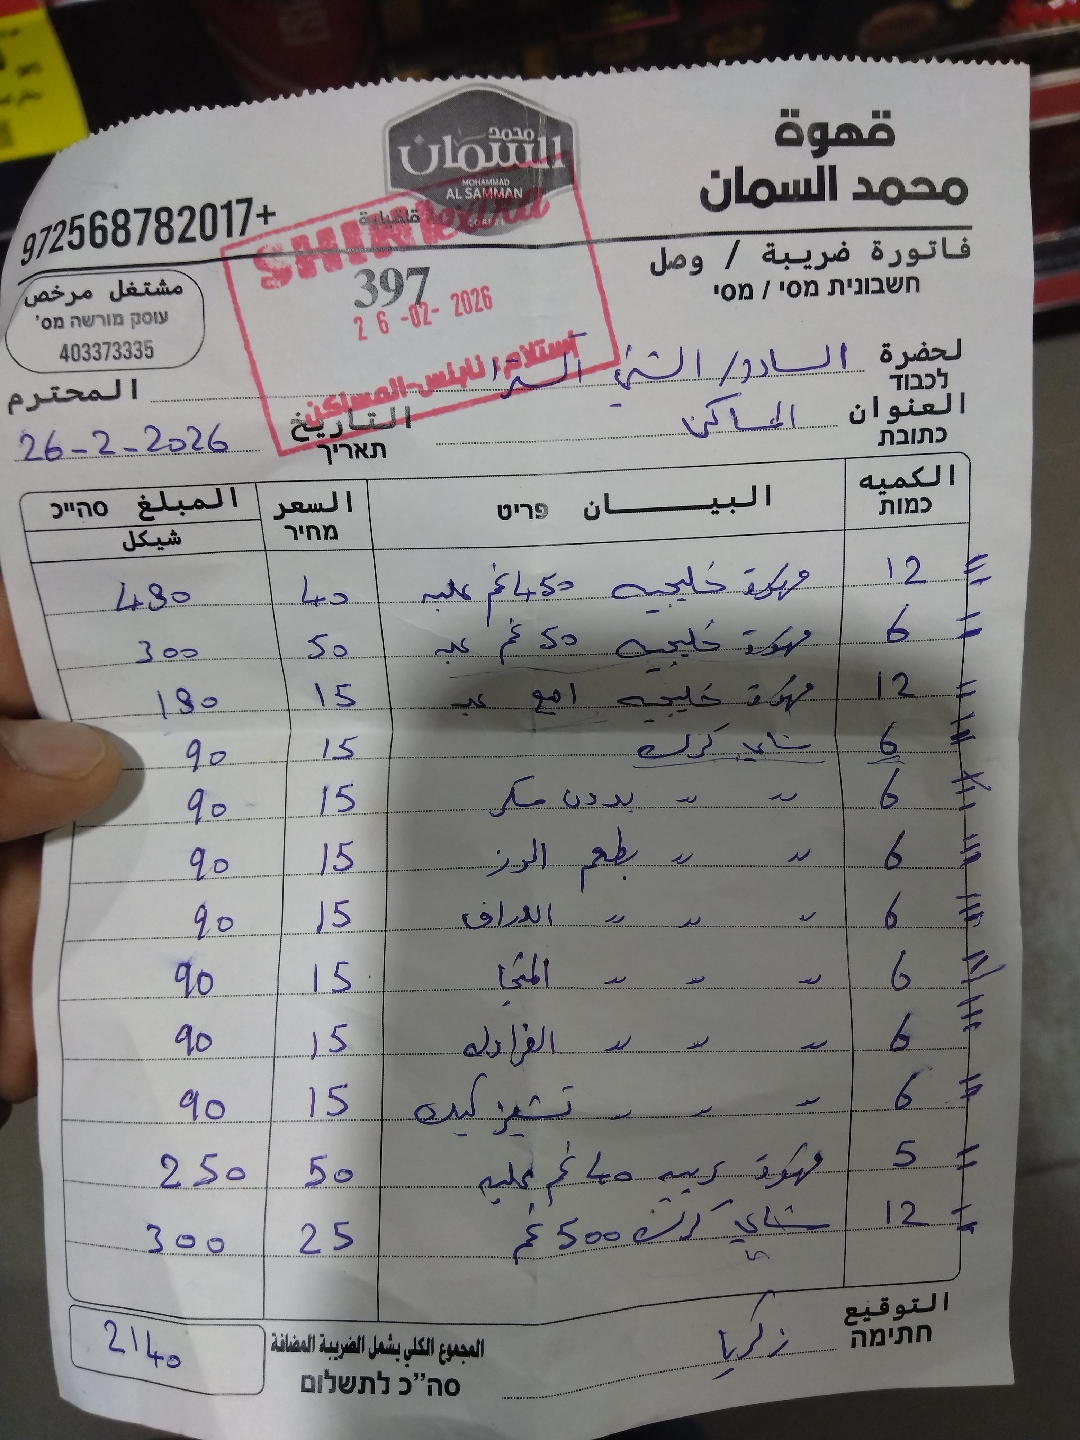 قهوة
محمد السمان
محمد
السمان
MOHAMMAD
AL SAMMAN
972568782017+
فاتورة ضريبة / وصل
חשבונית מסי / מסי
مشتغل مرخص
עוסק מורשה מס'
403373335
397
26-02-2026
استلام نابلس-المساكن
لحضرة السادة/ الشني
المحترم
לכבוד
العنوان المساكن
כתובת
التاريخ 26-2-2026
תאריך
الكميه البيـــــان السعر المبلغ
כמות פריט מחיר סה"כ
شيكل
12 قهوة خليجيه 450غم علبه 40 480
6 قهوة خليجيه غم 50 300
12 قهوة خليجيه 15 180
6 شاي كرك 15 90
6 " " بدون سكر 15 90
6 " " بطعم الوز 15 90
6 " " " 15 90
6 " " " 15 90
6 " " " 15 90
6 " " " تشيز كيك 15 90
5 قهوة غم علبه 50 250
12 شاي كرك 500 غم 25 300
التوقيع زكريا
חתימה
المجموع الكلي يشمل الضريبة المضافة 2140
סה"כ לתשלום